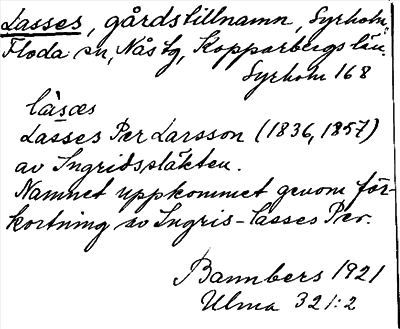 Lasses, gårdstillnamn, Syrholn,
Floda sn, Nås tg, Kopparbergs län.
Syrholn 168
låsæs
Lasses Per Larsson (1836, 1857)
av Ingridssläkten.
Namnet uppkommet genom för-
kortning av Ingris-lasses Per.
Bannbers 1921
Ulma 321:2